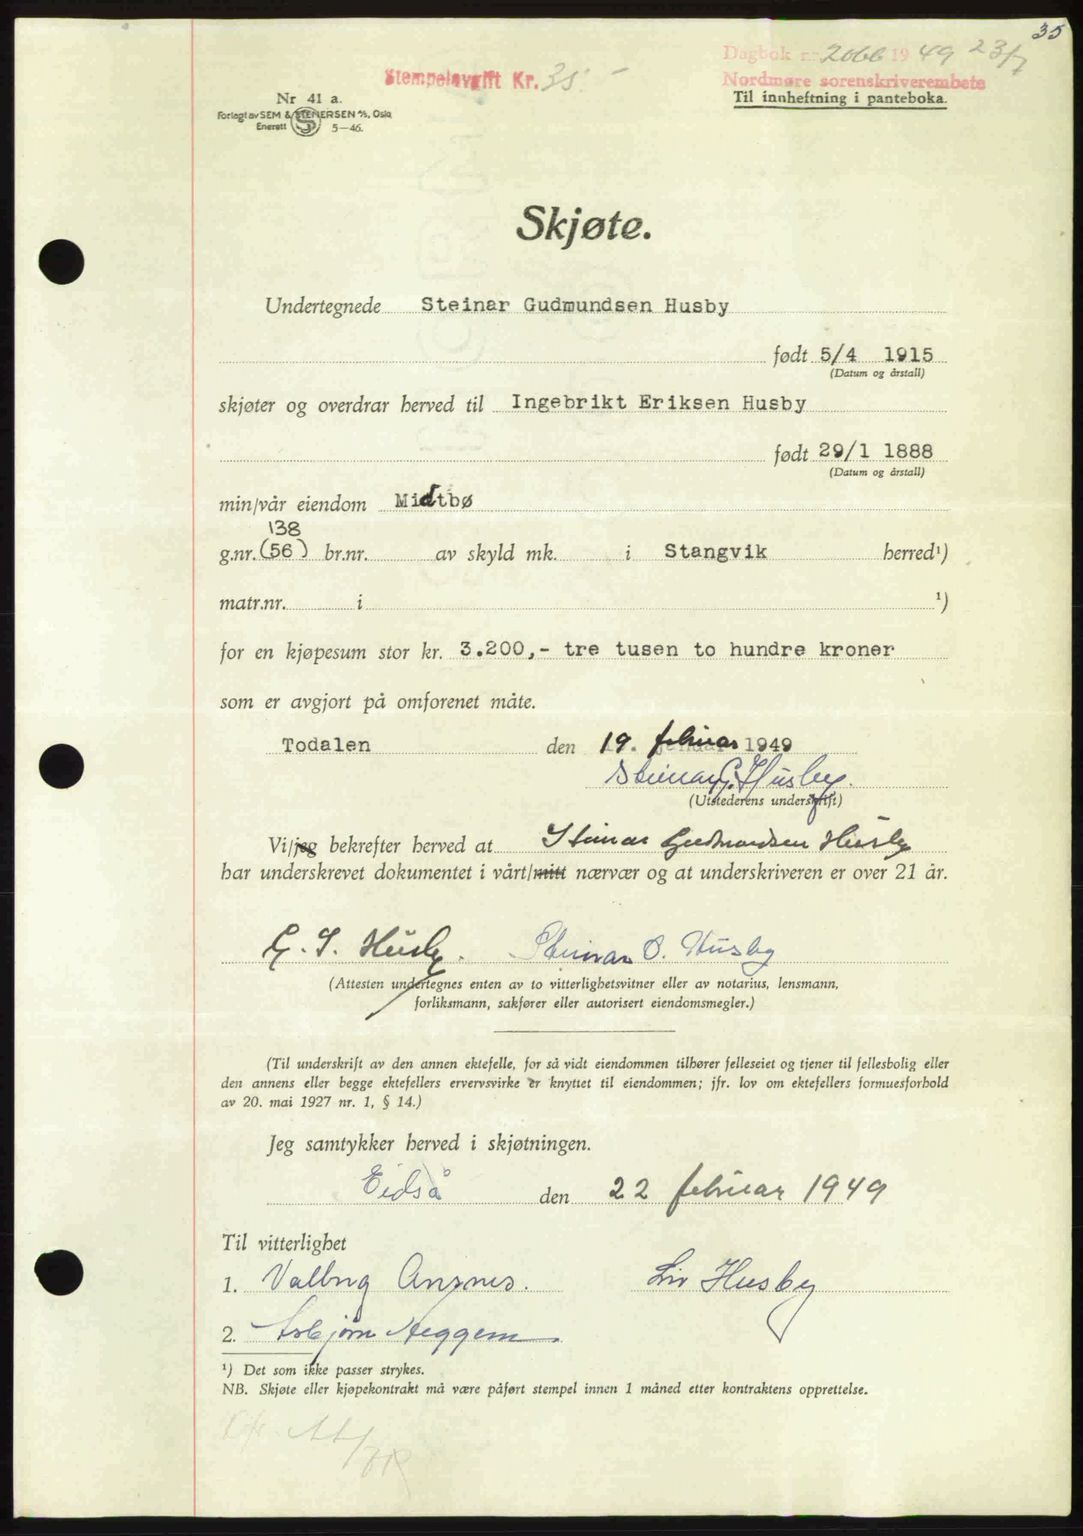 35
Dagbok nr. 2066 1949 23/7
Stempelavgift Kr. 35 -
Nordmøre sorenskriverembete
Til innheftning i panteboka.
Nr 41 a.
Forlagt av SEM & STENERSEN A/S, Oslo
Enerett S 5—46.
Skjøte.
Undertegnede Steinar Gudmundsen Husby
født 5/4 1915
(Datum og årstall)
skjøter og overdrar herved til Ingebrikt Eriksen Husby
født 29/1 1888
(Datum og årstall)
min/vår eiendom Midtbø
138
g.nr. (56) br.nr. av skyld mk. i Stangvik herred¹)
matr.nr. i ¹)
for en kjøpesum stor kr. 3.200,- tre tusen to hundre kroner
som er avgjort på omforenet måte.
Todalen den 19. februar 1949
Steinar G. Husby.
(Utstederens underskrift)
Vi/jeg bekrefter herved at Steinar Gudmundsen Husby
har underskrevet dokumentet i vårt/mitt nærvær og at underskriveren er over 21 år.
G. S. Husby. Steinar O. Husby
(Attesten undertegnes enten av to vitterlighetsvitner eller av notarius, lensmann,
forliksmann, sakfører eller autorisert eiendomsmegler.)
(Til underskrift av den annen ektefelle, for så vidt eiendommen tilhører felleseiet og tjener til fellesbolig eller
den annens eller begge ektefellers ervervsvirke er knyttet til eiendommen; jfr. lov om ektefellers formuesforhold
av 20. mai 1927 nr. 1, § 14.)
Jeg samtykker herved i skjøtningen.
Eidså den 22 februar 1949
Til vitterlighet
1. Valbrg Ansnes. Liv Husby
2. Asbjørn Aeggem
¹) Det som ikke passer strykes.
NB. Skjøte eller kjøpekontrakt må være påført stempel innen 1 måned etter kontraktens opprettelse.